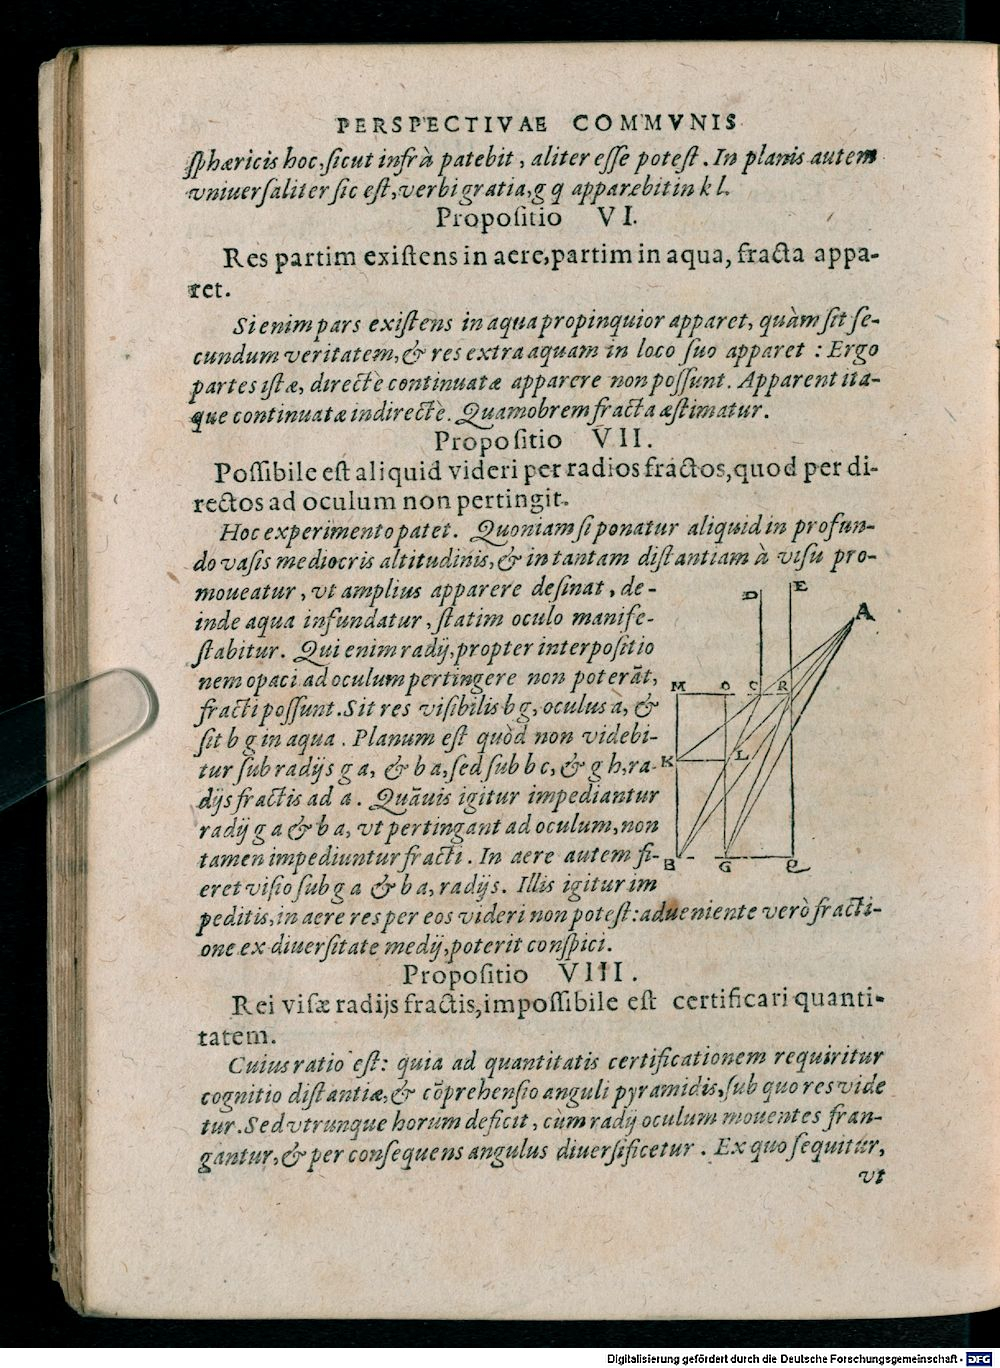 PERSPECTIVAE COMMVNIS
sphæricis hoc, sicut infrà patebit, aliter esse potest. In planis autem
vniuersaliter sic est, verbi gratia, g q apparebit in k l.
Propositio VI.
Res partim existens in aere, partim in aqua, fracta appa-
ret.
Si enim pars existens in aqua propinquior apparet, quàm sit se-
cundum veritatem, & res extra aquam in loco suo apparet : Ergo
partes istæ, directè continuatæ apparere non possunt. Apparent ita-
que continuatæ indirectè. Quamobrem fracta æstimatur.
Propositio VII.
Possibile est aliquid videri per radios fractos, quod per di-
rectos ad oculum non pertingit.
Hoc experimento patet. Quoniam si ponatur aliquid in profun-
do vasis mediocris altitudinis, & in tantam distantiam à visu pro-
moueatur, vt amplius apparere desinat, de-
inde aqua infundatur, statim oculo manife-
stabitur. Qui enim radij, propter interpositio
nem opaci ad oculum pertingere non poterāt, &
fracti possunt. Sit res visibilis b g, oculus a, &
sit b g in aqua. Planum est quòd non videbi-
tur sub radijs g a, & b a, sed sub b c, & g h, ra-
dijs fractis ad a. Quāuis igitur impediantur
radij g a & b a, vt pertingant ad oculum, non
tamen impediuntur fracti. In aere autem fi-
eret visio sub g a & b a, radijs. Illis igitur im
peditis, in aere res per eos videri non potest: adueniente verò fracti-
one ex diuersitate medij, poterit conspici.
D E
A
M O C R
K L
B G Q
Propositio VIII.
Rei visæ radijs fractis, impossibile est certificari quanti-
tatem.
Cuius ratio est: quia ad quantitatis certificationem requiritur
cognitio distantiæ, & cōprehensio anguli pyramidis, sub quo res vide
tur. Sed vtrunque horum deficit, cùm radij oculum mouentes fran-
gantur, & per consequens angulus diuersificetur. Ex quo sequitur,
vt
Digitalisierung gefördert durch die Deutsche Forschungsgemeinschaft - DFG